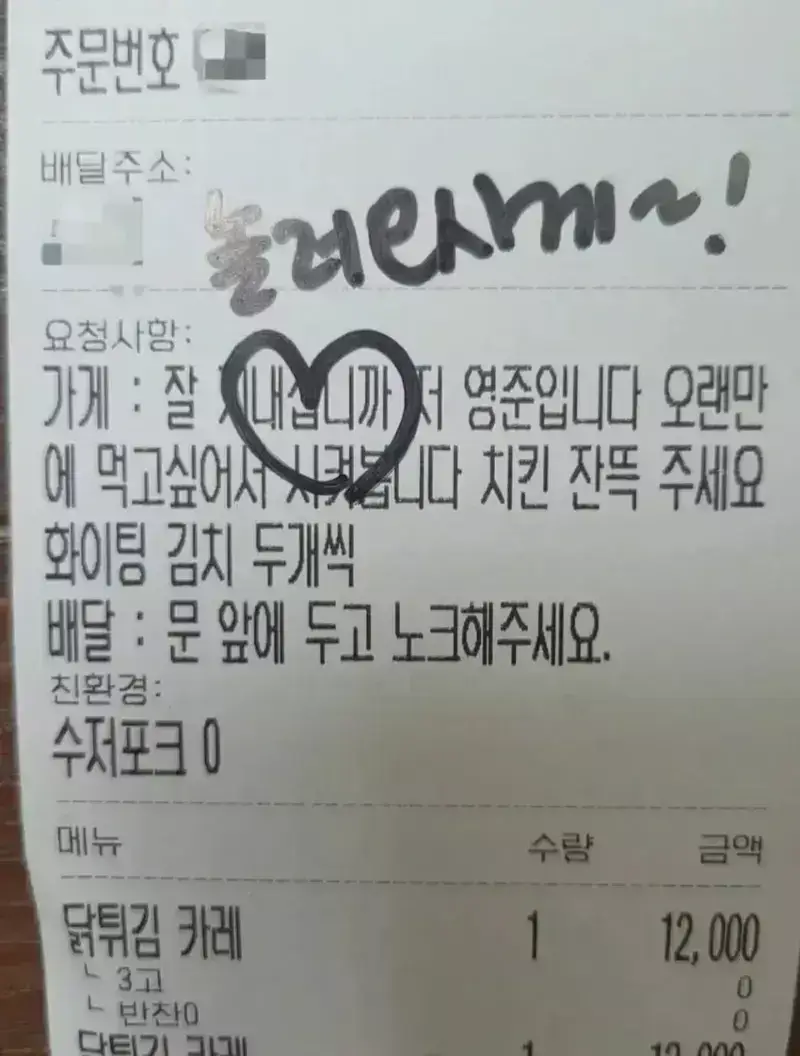 주문번호
배달주소:
놀러와사케~!
요청사항:
가게 : 잘 지내십니까 저 영준입니다 오랜만
에 먹고싶어서 시켜봅니다 치킨 잔뜩 주세요
화이팅 김치 두개씩
배달 : 문 앞에 두고 노크해주세요.
친환경:
수저포크 0
메뉴 수량 금액
닭튀김 카레 1 12,000
ㄴ 3고 0
ㄴ 반찬0 0
닭튀김 카레 1 12,000